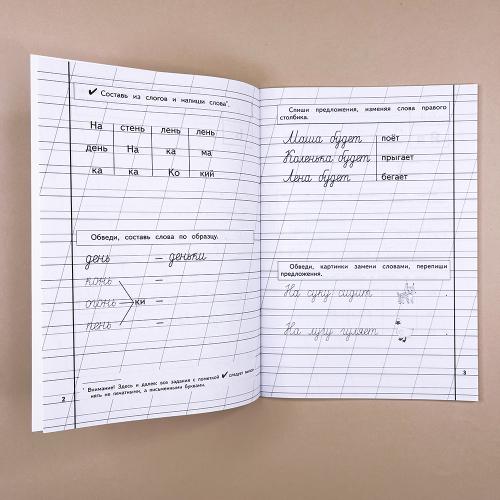 ✔ Составь из слогов и напиши слова*.
На стень лень лень
день На ка ма
ка ка Ко кий
Обведи, составь слова по образцу.
день – деньки
конь –
огонь ки –
пень –
* Внимание! Здесь и далее: все задания с пометкой ✔ следует выпол-
нять не печатными, а письменными буквами.
2
Спиши предложения, изменяя слова правого
столбика.
Маша будет поёт
Коленька будет прыгает
Лена будет бегает
Обведи, картинки замени словами, перепиши
предложения.
На суку сидит
На лугу гуляет
3